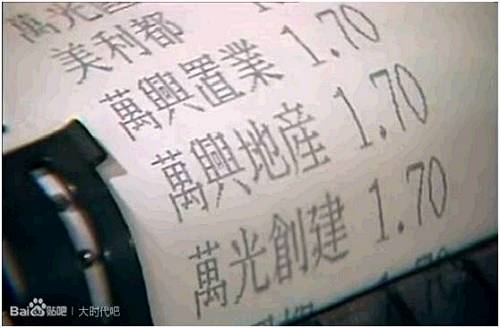 萬光置
美利都
萬興置業 1.70
萬興地産 1.70
萬光創建 1.70
1.70
Bai 贴吧 | 大时代吧